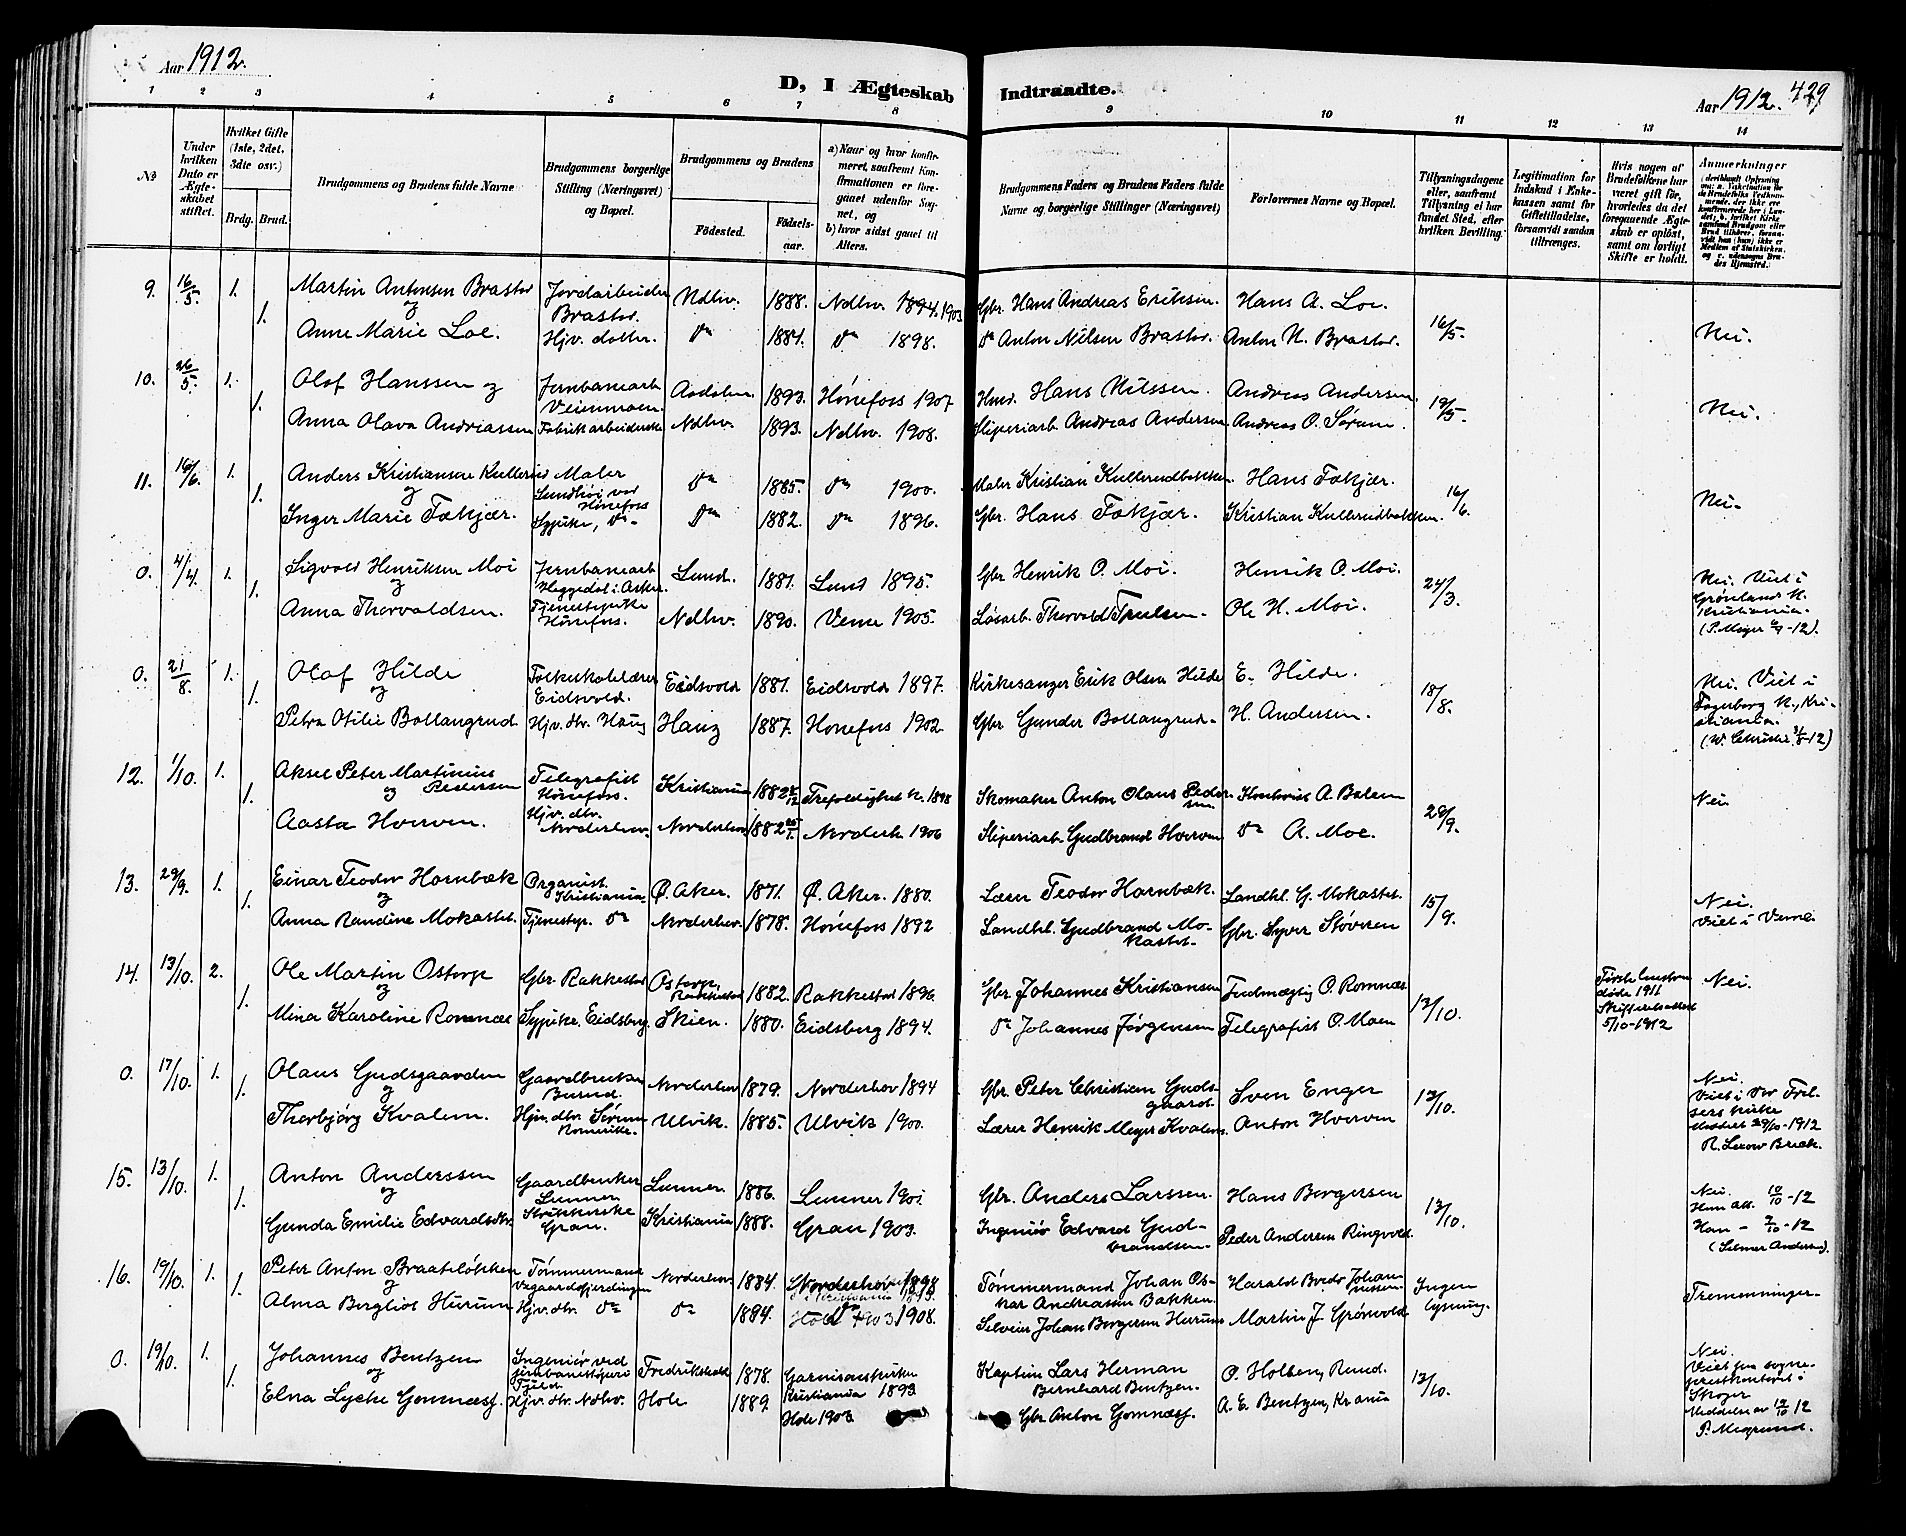 Aar 1912.
D, I Ægteskab Indtraadte.
Aar 1912. 429
1 2 3 4 5 6 7 8 9 10 11 12 13 14
No
Under hvilken Dato er Ægteskabet stiftet.
Hvilket Gifte (1ste, 2det, 3die osv.)
Brdg. Brud.
Brudgommens og Brudens fulde Navne
Brudgommens borgerlige Stilling (Næringsvei) og Bopæl.
Brudgommens og Brudens
Födested.
Födsels-aar.
a) Naar og hvor konfirmeret, saafremt Konfirmationen er foregaaet udenfor Sognet, og
b) hvor sidst gaaet til Alters.
Brudgommens Faders og Brudens Faders fulde Navne og borgerlige Stillinger (Næringsvei)
Forlovernes Navne og Bopæl.
Tillysningsdagene eller, saafremt Tillysning ei har fundet Sted, efter hvilken Bevilling.
Legitimation for Indskud i Enkekassen samt for Giftetilladelse, forsaavidt saadan tiltrænges.
Hvis nogen af Brudefolkene har været gift før, hvorledes da det foregaaende Ægteskab er opløst, samt om lovligt Skifte er holdt.
Anmærkninger
9. 16/5. 1. Martin Antonsen Brastad Jordarbeider Ndhv. 1888. Ndhv. 1894. 1903 Gbr. Hans Andreas Eriksen. Hans A. Loe.
og Brastad.
1. Anne Marie Loe. Hjv. datter. do 1884. do 1898. do Anton Nilsen Brastad. Anton N. Brastad. 16/5. Nei.
10. 26/5. 1. Olaf Hanssen og Jernbanearb Aadalen. 1893. Hönefoss 1907 Hmd. Hans Nilssen. Andreas Andersen.
Veienmoen.
1. Anna Olava Andreassen Fabrikarbeiderske Ndhv. 1893. Ndhv. 1908. Sliperiarb. Andreas Andersen Andreas O. Sörum. 19/5. Nei.
11. 16/6. 1. Anders Kristiansen Kullerud Maler do 1885. do 1900. Maler Kristian Kullerudbakken. Hans Fækjær.
og Hönefoss
1. Inger Marie Fækjær. Sypike, do 1882. do 1896. Gbr. Hans Fækjær. Kristian Kullerudbakken. 16/6. Nei.
0. 4/4. 1. Sigvald Henriksen Moi Jernbanearb Lund. 1881. Lund 1895. Gbr. Henrik O. Moi. Henrik O. Moi.
og Heggedal i Asker.
1. Anna Thorvaldsen. Tjenestepike Hönefoss. Ndhv. 1890. Veme 1905. Løsarb. Thorvald Truelsen. Ole H. Moi. 24/3.
Nei. Viet i Grönlands K. Kristiania.
0. 21/8. 1. Olaf Hilde Folkeskolelærer Eidsvold 1881. Eidsvold 1897. Kirkesanger Erik Olsen Hilde E. Hilde.
og Eidsvold.
1. Petra Otilie Bollangrud Hjv. dtr. Haug Haug 1887. Hönefoss 1902. Gbr. Gunder Bollangrud. H. Andersen. 18/8.
Nei. Viet i Fagerborg K., Kristiania.
(W. Christie 21/8-12)
12. 1/10. 1. Aksel Peter Martinius Pedersen Telegrafist Hönefoss. Kristiania 1882 Trefoldighet K. 1898 Skomaker Anton Olaus Pedersen Kontorist A. Bolsen
og
1. Aasta Hverven. Hjv. dtr. Norderhov. Norderhov 1882 Norderh. 1906 Sliperiarb. Gudbrand Hverven do A. Moe. 28/9. Nei
13. 29/9. 1. Einar Teodor Hornbæk Organist. Kristiania. Ø. Aker. 1871. Ø. Aker. 1880. Lærer Teodor Hornbæk. Landhl. G. Mokastet.
og
1. Anna Randine Mokastet. Tjenestep. do Norderhov. 1878. Hönefoss 1892 Landhl. Gudbrand Mokastet. Gbr. Syver Stöveren 15/9. Nei. Viet i Veme.
14. 13/10. 2. Ole Martin Ostorp Gbr. Rakkestad Ostorp, Rakkestad 1882. Rakkestad 1896. Gbr. Johannes Kristiansen Fuldmægtig O. Romnæs
og
1. Mina Karoline Romnæs Sypike. Eidsberg. Skien. 1880. Eidsberg 1894. do Johannes Jørgensen Telegrafist O. Moen 13/10.
Første hustru døde 1911 Skifteretsattest 5/10-1912
Nei.
0. 17/10. 1. Olaus Gudsgaarden Gaardbruker Norderhov 1879. Norderhov 1894 Gbr. Peter Christian Gudsgaard. Sven Enger
og
1. Thorbjörg Kvalem. Hjv. dtr. Sörum Romerike. Ulvik. 1885. Ulvik 1900. Lærer Henrik Meyer Kvalem. Anton Hverven 13/10.
Nei. Viet i Vor Frelsers kirke 1912
15. 13/10. 1. Anton Anderssen Gaardbruker Lunner Lunner. 1886. Lunner 1901 Gbr. Anders Larssen. Hans Bergersen
og
1. Gunda Emilie Edvardsdtr. Strikkerske Gran. Kristiania 1888. Gran 1903. Ingeniör Edvard Gudbrandsen. Peder Andersen Ringvold. 13/10.
Nei.
Hun att. 10/10-12
Han - 2/10-12
16. 19/10. 1. Peter Anton Braateløkken Tømmermand Norderhov. 1884. Norderhov 1898 Tømmermand Johan Oskar Andreassen Bakken. Harald Bredo Johannessen
og
1. Alma Bergliot Hurum Hjv. dtr. do do 1894. 1908. Johan Bergersen Hurum Martin J. Grønvold Ingen lysning. Fremenninger.
0. 19/10. 1. Johannes Bentzen Ingeniör ved Fredrikshald 1878. Garnisonskirken Kristiania 1893 Kaptein Lars Herman Bernhard Bentzen. O. Holben, Rund.
og
1. Elna Lycke Gomnæs. Hjv. dtr. Ndhv. Hole 1889. Hole 1903 Gbr. Anton Gomnæs. A. E. Bentzen, Krania 13/10.
Nei.
Skoger
Meddelse av 19/10 12